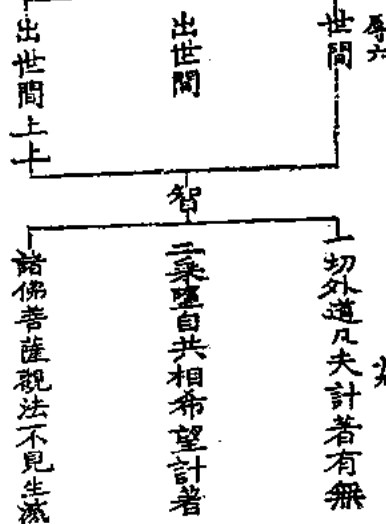 世間
出世間
出世間上上
智
一切外道凡夫計著有無
二乘墮自共相希望計著
諸佛菩薩觀法不見生滅